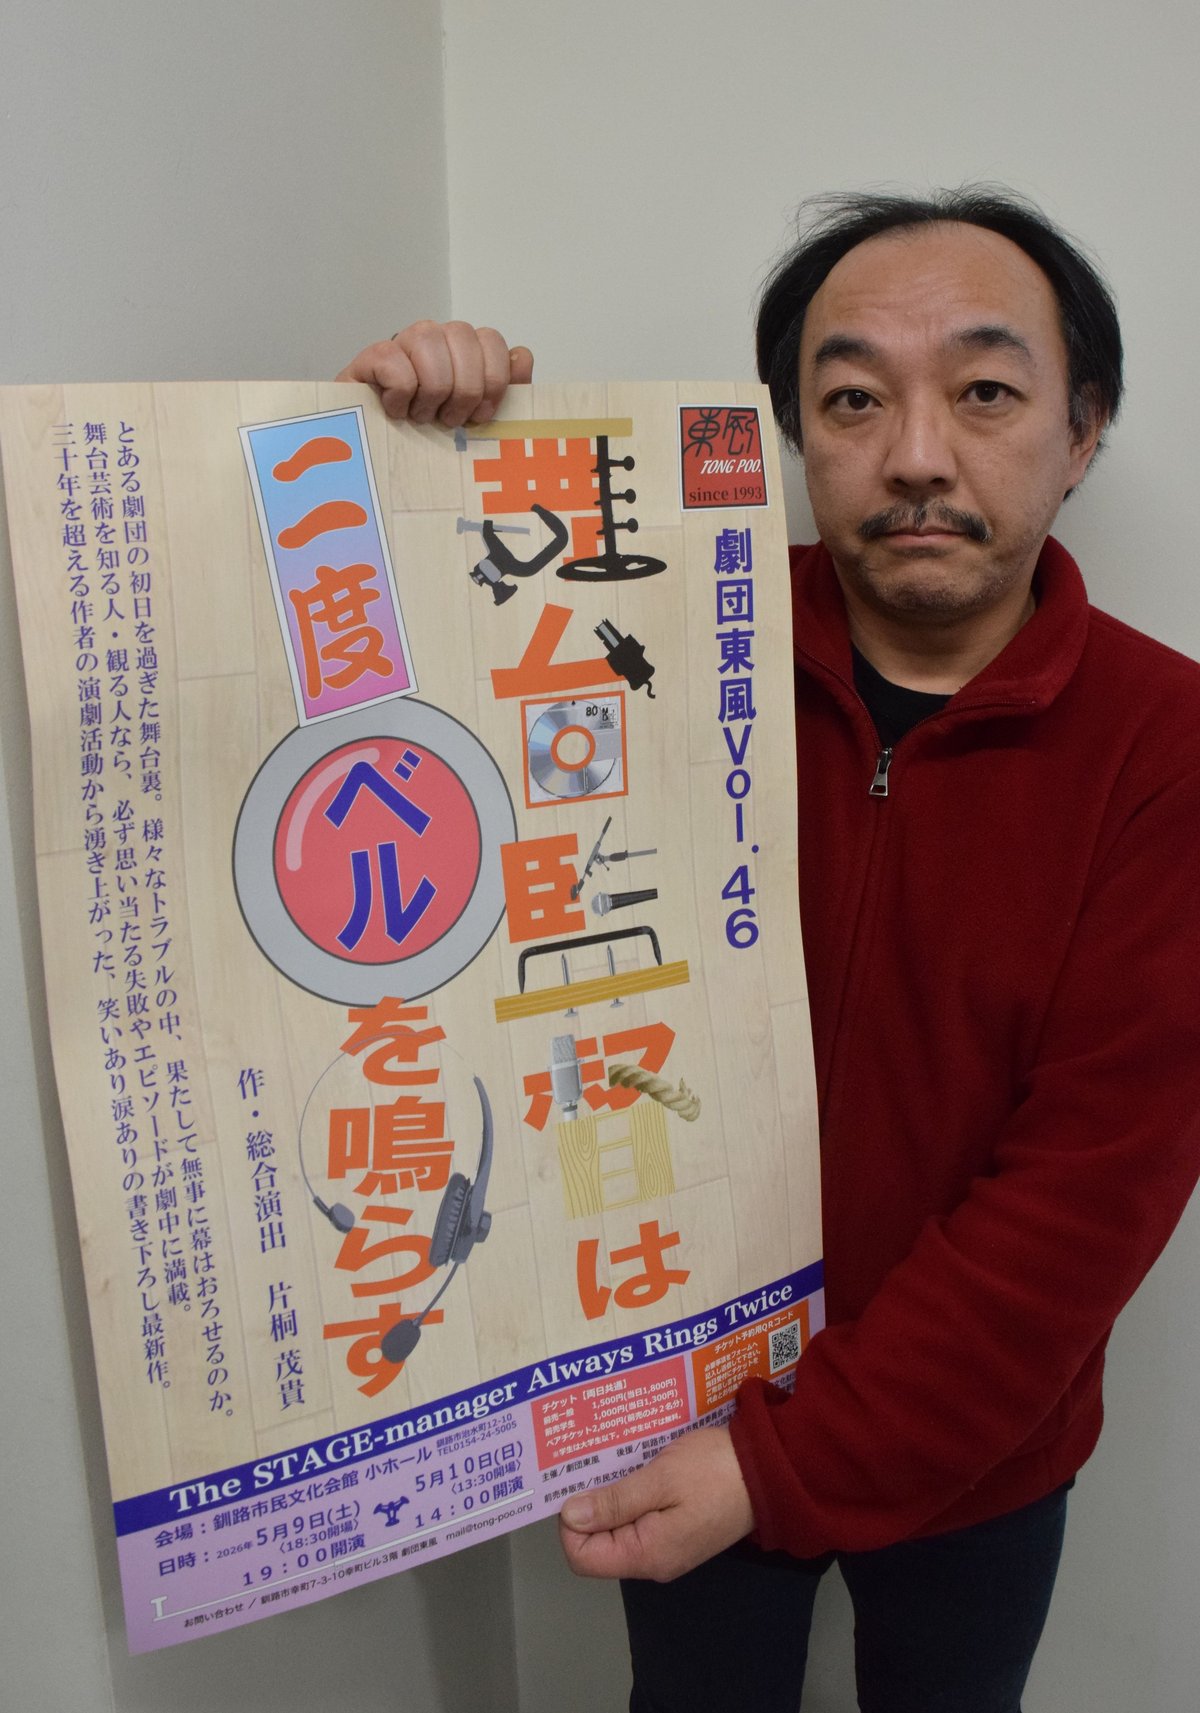 東風
TONG POO.
since 1993
劇団東風Vol.46
舞台監督は
二度
ベル
を鳴らす
作・総合演出 片桐 茂貴
とある劇団の初日を過ぎた舞台裏。様々なトラブルの中、果たして無事に幕はおろせるのか。
舞台芸術を知る人・観る人なら、必ず思い当たる失敗やエピソードが劇中に満載。
三十年を超える作者の演劇活動から湧き上がった、笑いあり涙ありの書き下ろし最新作。
The STAGE-manager Always Rings Twice
会場：釧路市民文化会館 小ホール 釧路市治水町12-10
TEL0154-24-5005
日時：2026年5月9日(土)
〈18:30開場〉
19：00開演
5月10日(日)
〈13:30開場〉
14：00開演
チケット【両日共通】
前売一般 1,500円(当日1,800円)
前売学生 1,000円(当日1,300円)
ペアチケット2,800円(前売のみ2名分)
※学生は大学生以下。小学生以下は無料。
チケット予約用QRコード
必要事項をフォームへ
記入し送信して下さい。
当日受付にチケットを
ご用意しますので
主催／劇団東風
後援／釧路市・釧路市教育委員会・
前売券販売／市民文化会館
お問い合わせ／釧路市幸町7-3-10幸町ビル3階 劇団東風 mail@tong-poo.org